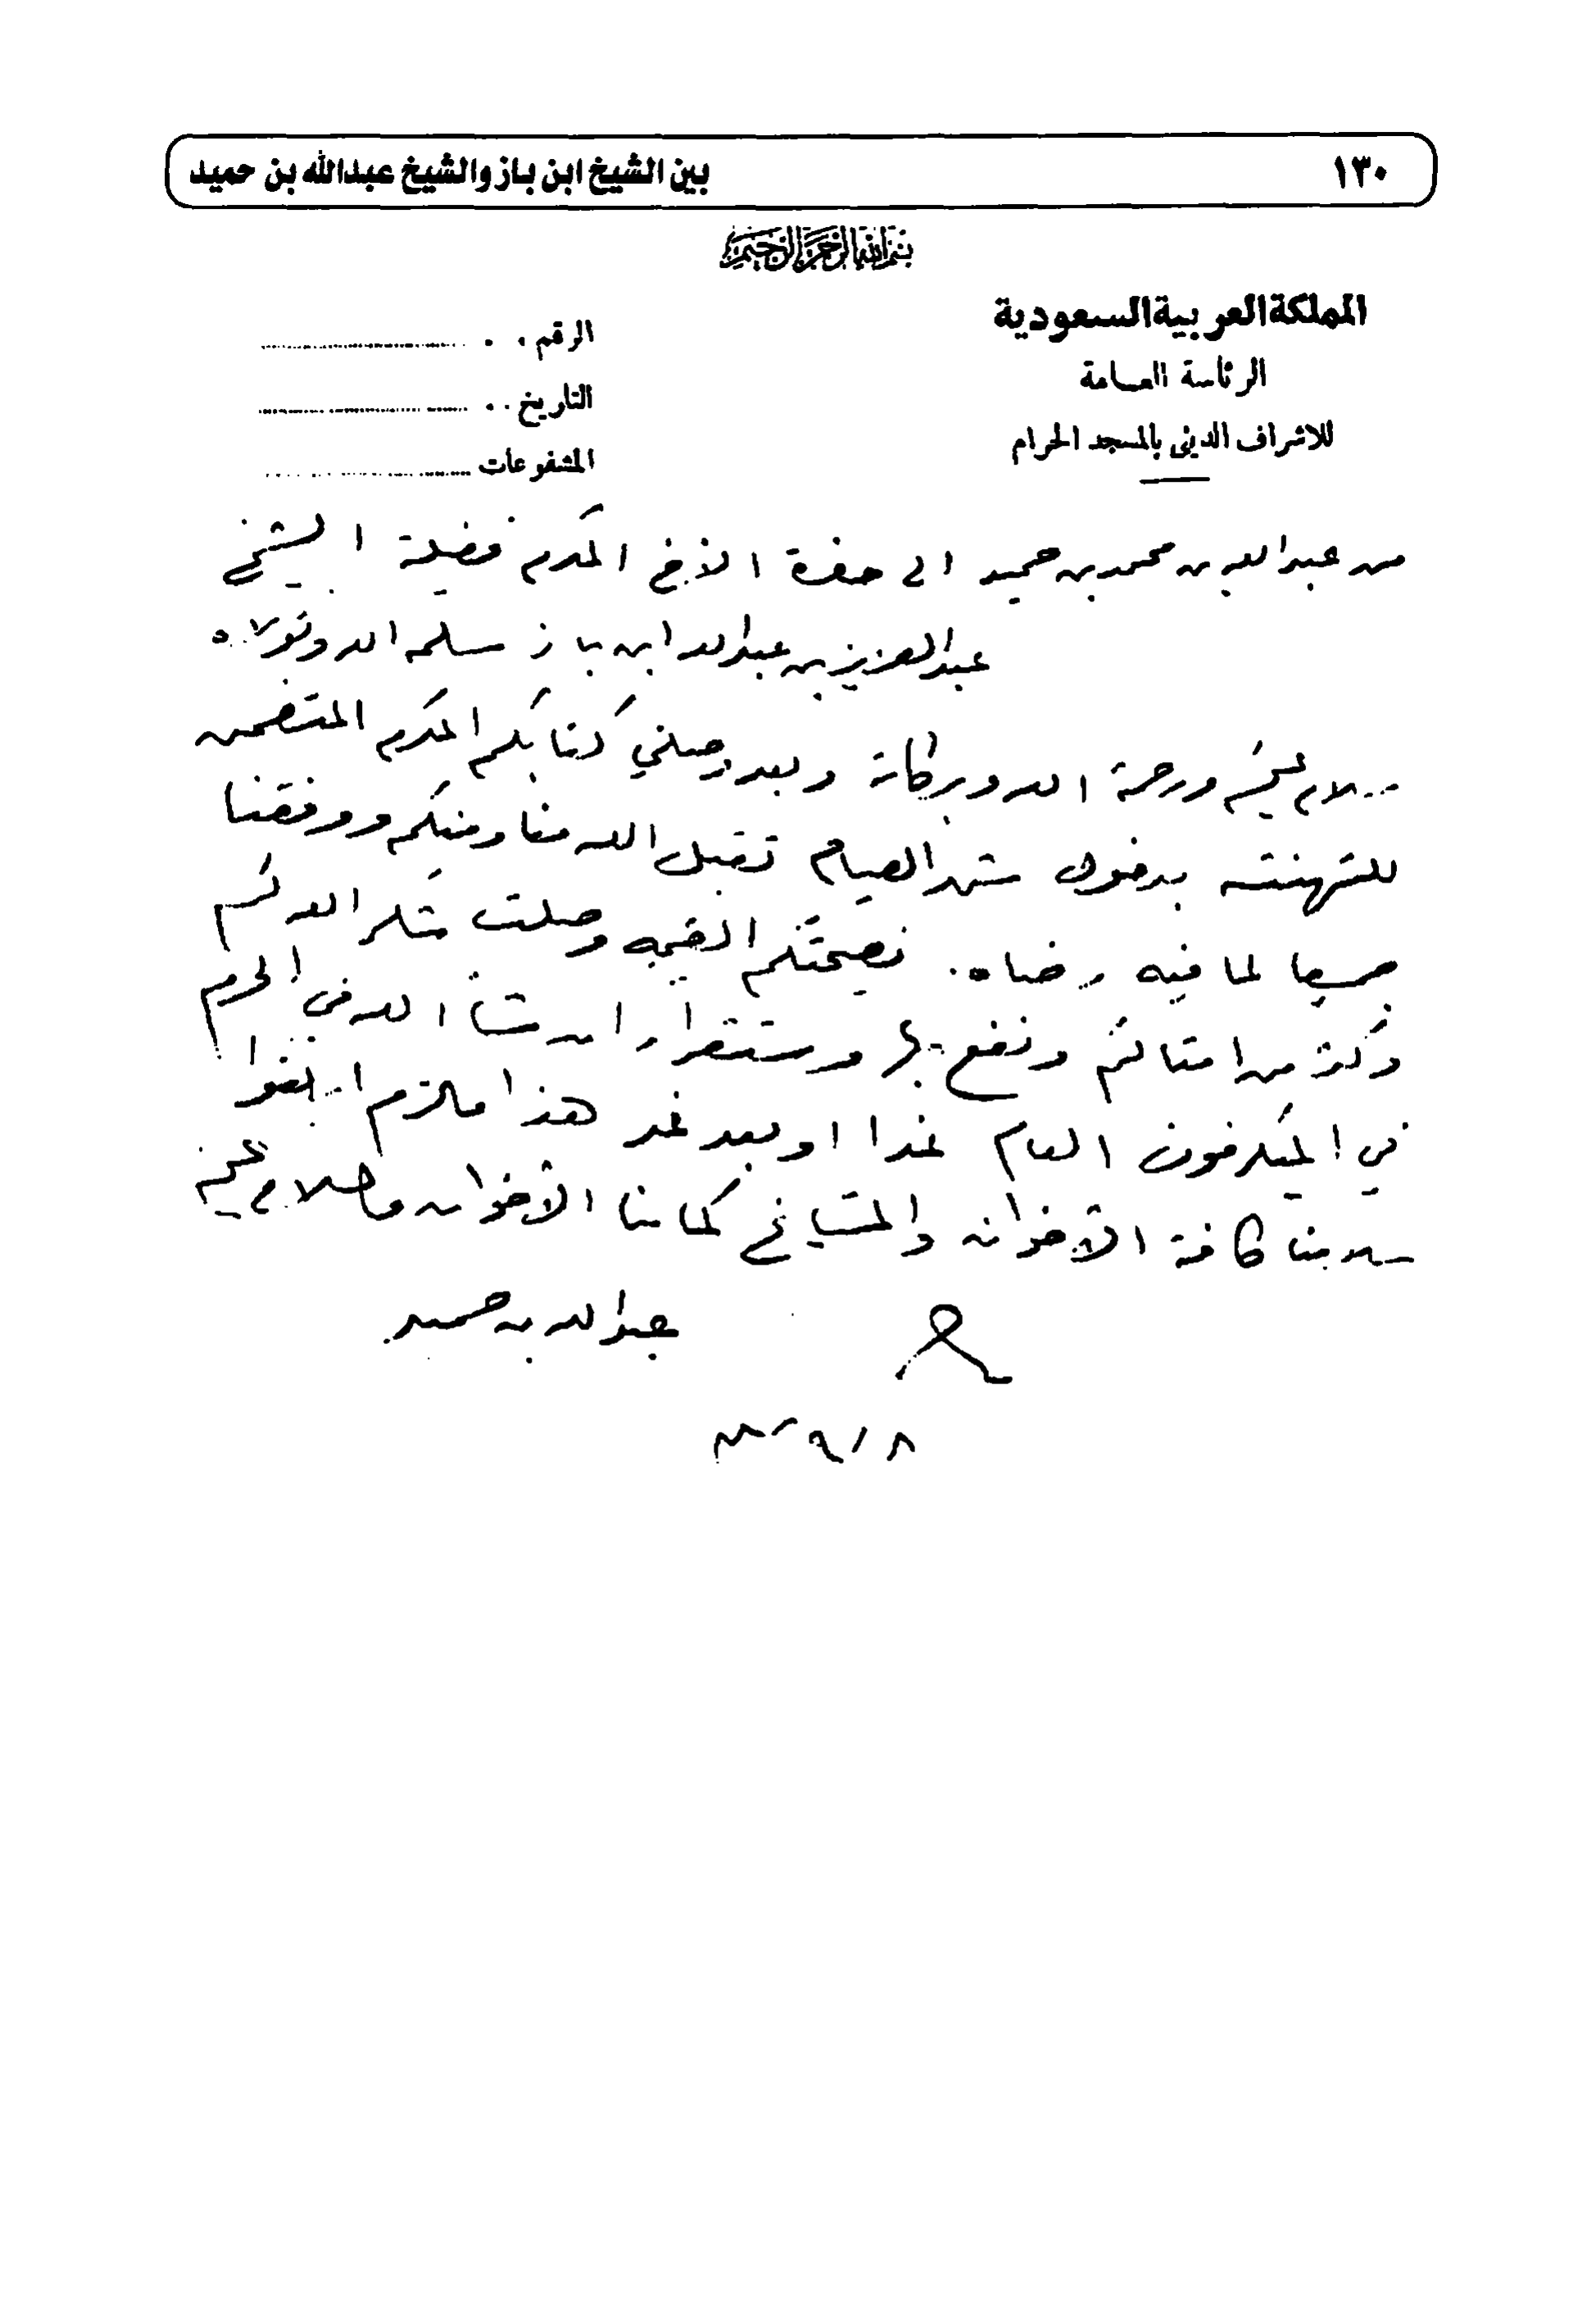 ١٣٠
بين الشيخ ابن باز والشيخ عبدالله بن حميد
بسم الله الرحمن الرحيم
المملكة العربية السعودية
الرئاسة العامة
للاشراف الديني بالمسجد الحرام
الرقم . .
التاريخ . .
المشفوعات
من عبدالله بن محمد بن حميد الى حضرة الأخ المكرم فضيلة الشيخ
عبدالعزيز بن عبدالله ابن باز سلمه الله وتولاه
سلام عليكم ورحمة الله وبركاته وبعد وصلني كتابكم المكرم المتضمن
للتهنئة بدخول شهر الصيام تقبل الله منا ومنكم ووفقنا
جميعا لما فيه رضاه. نصيحتكم القيمه وصلت شكر الله لكم
وكثر من امثالكم ونفع بها وستقرأ ان شاء الله في الحرم
في الميكرفون العام غدا او بعد غد هذا مالزم ابلغوا
سلامنا كافة الأخوان والمشايخ كما منا الأخوان والسلام عليكم
عبدالله بن حميد
٨/٩